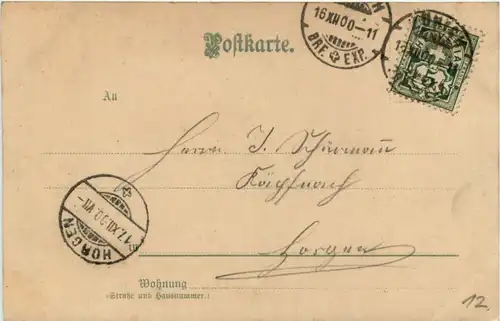 16 XII 00-11
BRF. EXP.
Postkarte.
An
Herrn J. Schürmann
Käpfnach
HORGEN
17.XII.00.VII-
in
Horgen
Wohnung
(Straße und Hausnummer.)
12.